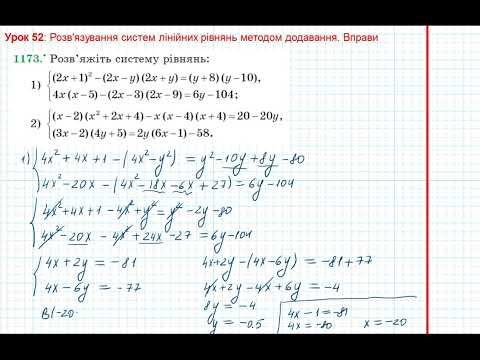 Урок 52: Розв'язування систем лінійних рівнянь методом додавання. Вправи
1173.• Розв'яжіть систему рівнянь:
1) { (2x + 1)² − (2x − y)(2x + y) = (y + 8)(y − 10),
4x(x − 5) − (2x − 3)(2x − 9) = 6y − 104;
2) { (x − 2)(x² + 2x + 4) − x(x − 4)(x + 4) = 20 − 20y,
(3x − 2)(4y + 5) = 2y(6x − 1) − 58.
1) { 4x² + 4x + 1 − (4x² − y²) = y² − 10y + 8y − 80
4x² − 20x − (4x² − 18x − 6x + 27) = 6y − 104
{ 4x² + 4x + 1 − 4x² + y² = y² − 2y − 80
4x² − 20x − 4x² + 24x − 27 = 6y − 104
{ 4x + 2y = −81
4x − 6y = −77
В(−20
4x + 2y − (4x − 6y) = −81 + 77
4x + 2y − 4x + 6y = −4
8y = −4
y = −0.5
4x − 1 = −81
4x = −80 x = −20